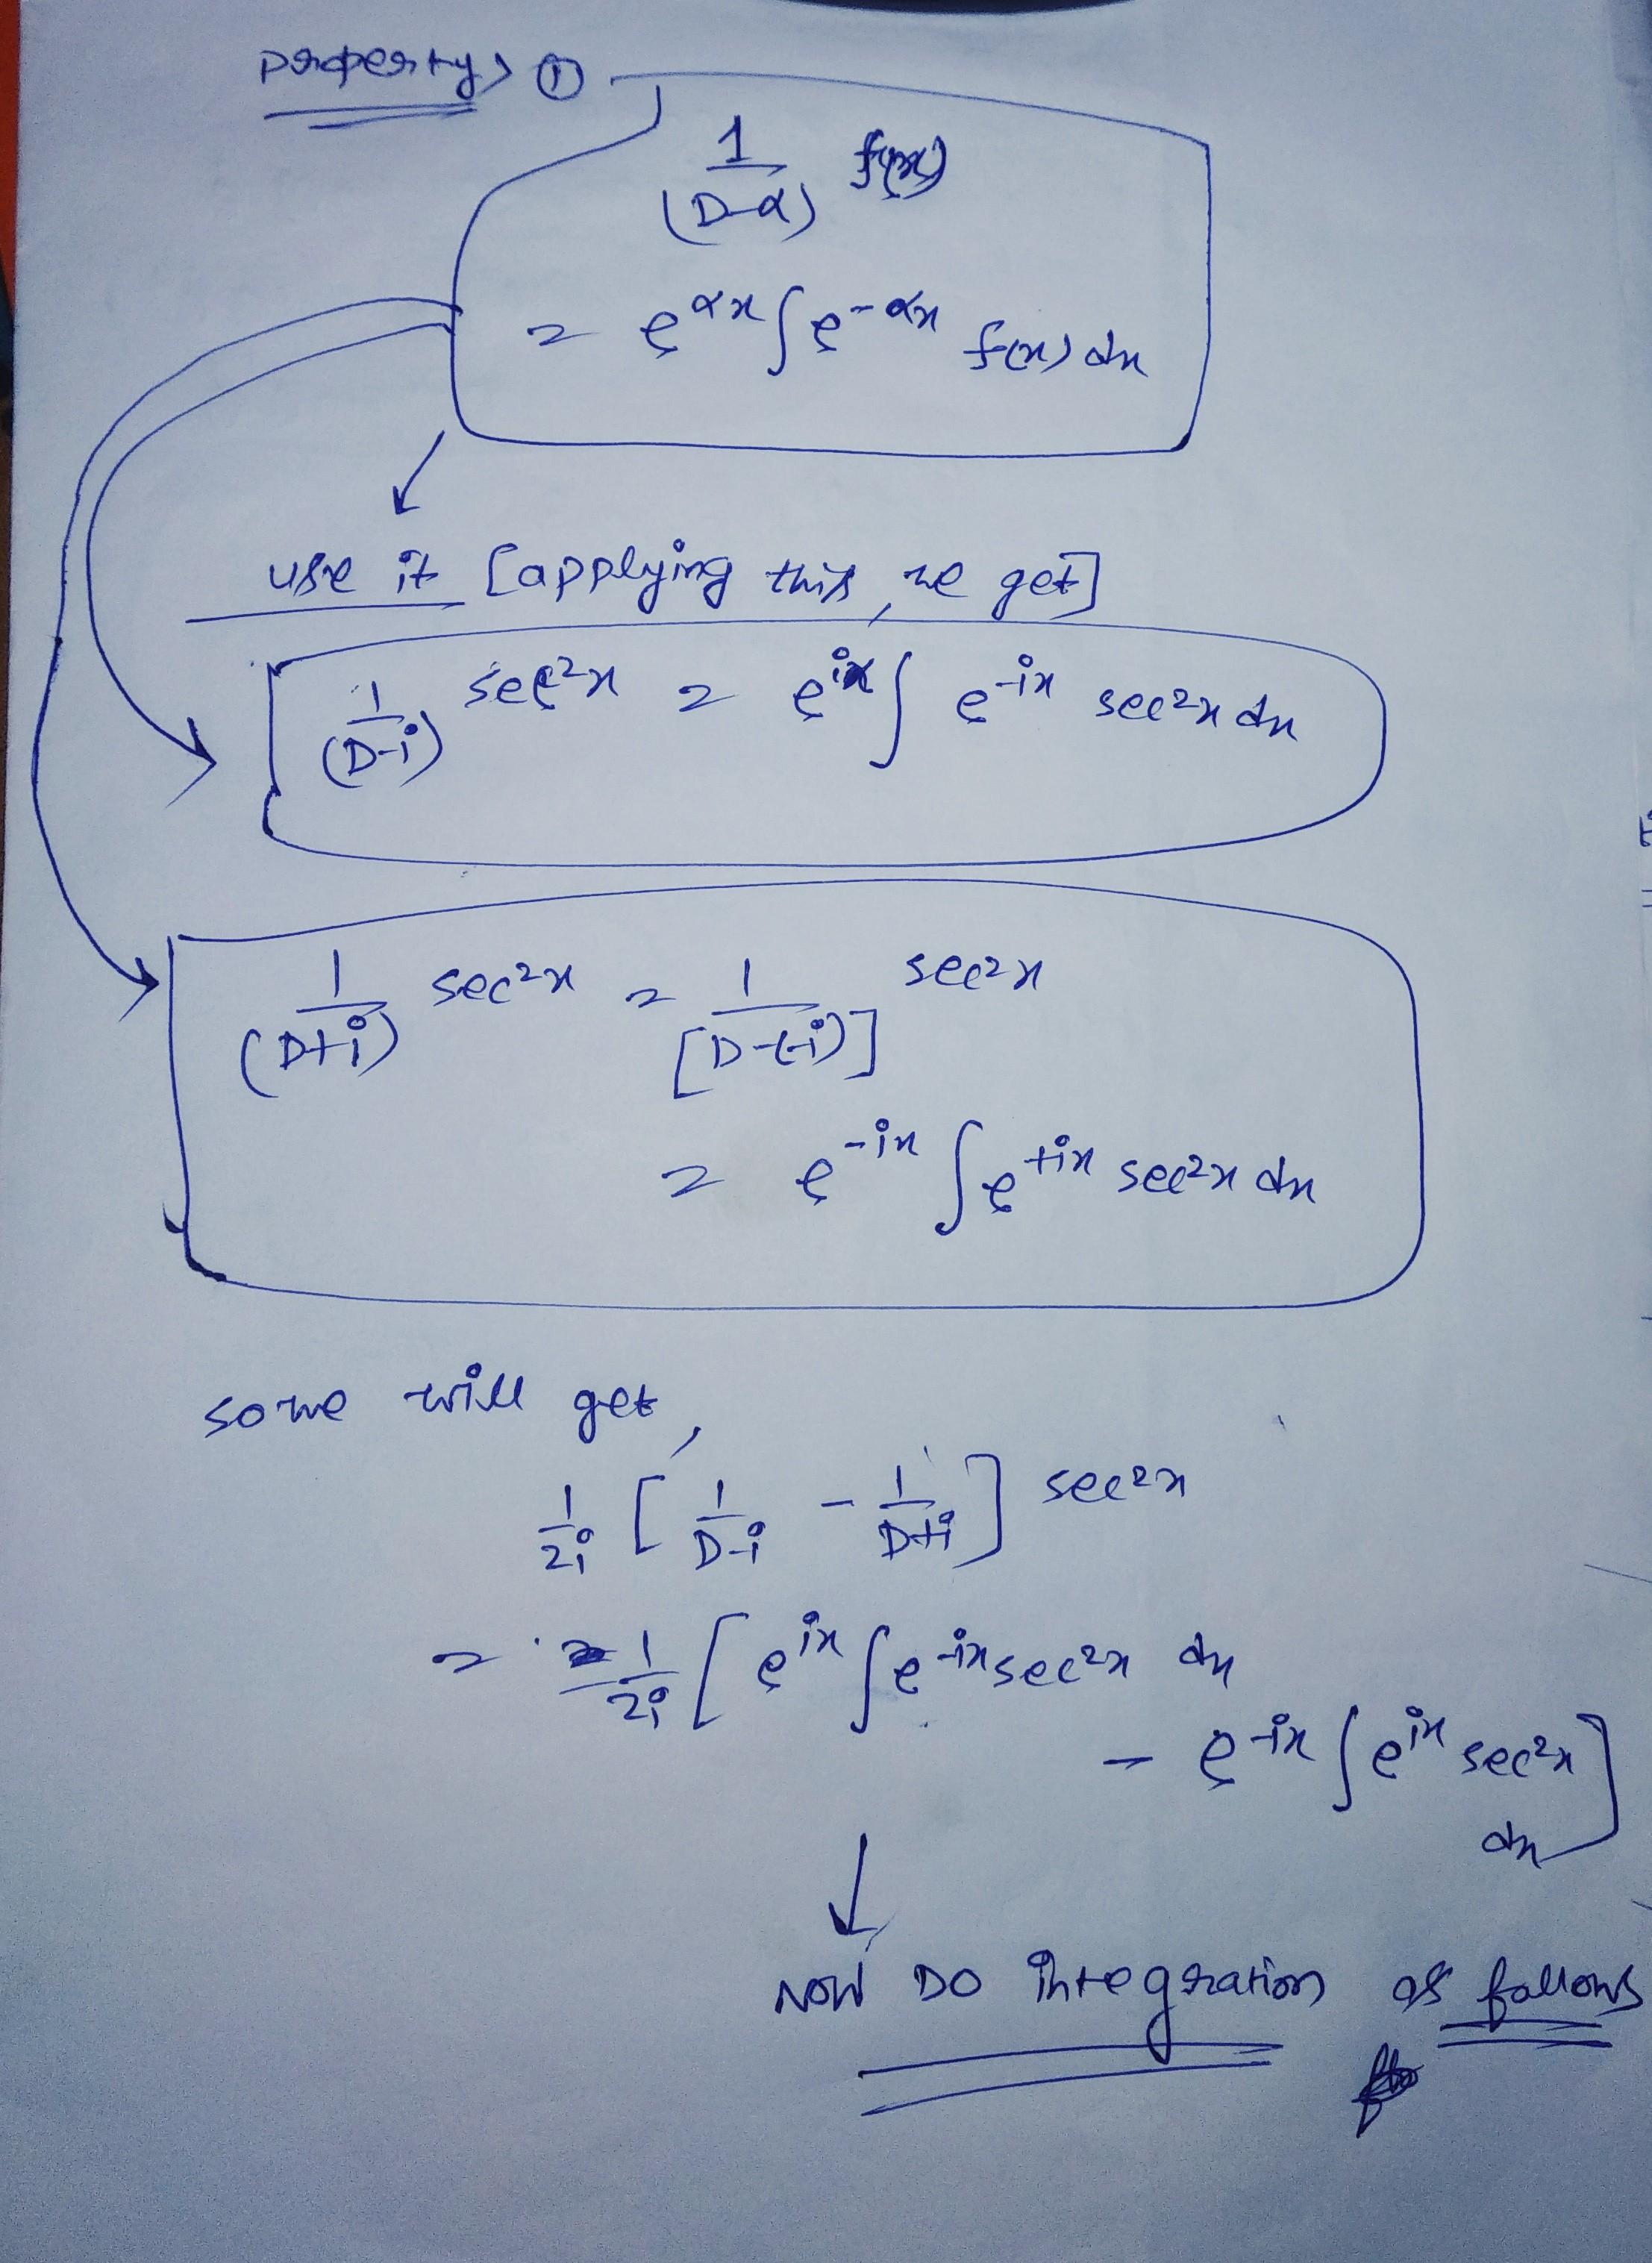 property> ①
1/(D-α) f(x)
= e^{αx} ∫ e^{-αx} f(x) dx
use it [applying this, we get]
1/(D-i) sec²x = e^{ix} ∫ e^{-ix} sec²x dx
1/(D+i) sec²x = 1/[D-(-i)] sec²x
= e^{-ix} ∫ e^{+ix} sec²x dx
so we will get,
1/2i [1/D-i - 1/D+i] sec²x
= 1/2i [e^{ix} ∫ e^{-ix} sec²x dx
- e^{-ix} ∫ e^{ix} sec²x
dx]
NOW DO integration as follows